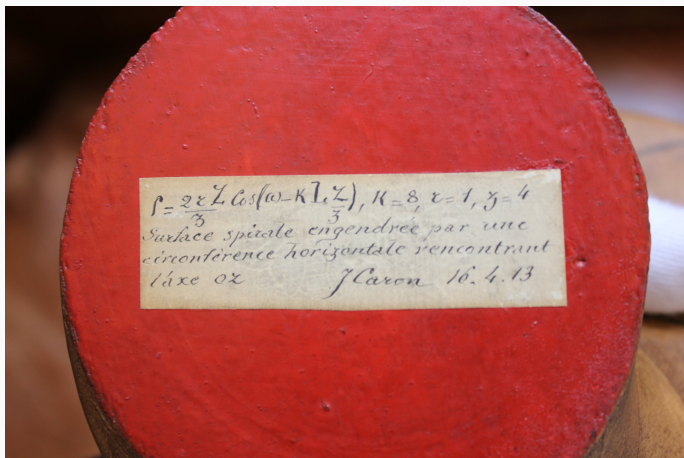 ρ = 2rZ/z Cos(ω-K L Z/z), K=8, r=1, z=4
Surface spirale engendrée par une
circonférence horizontale rencontrant
l'axe oz J Caron 16.4.13